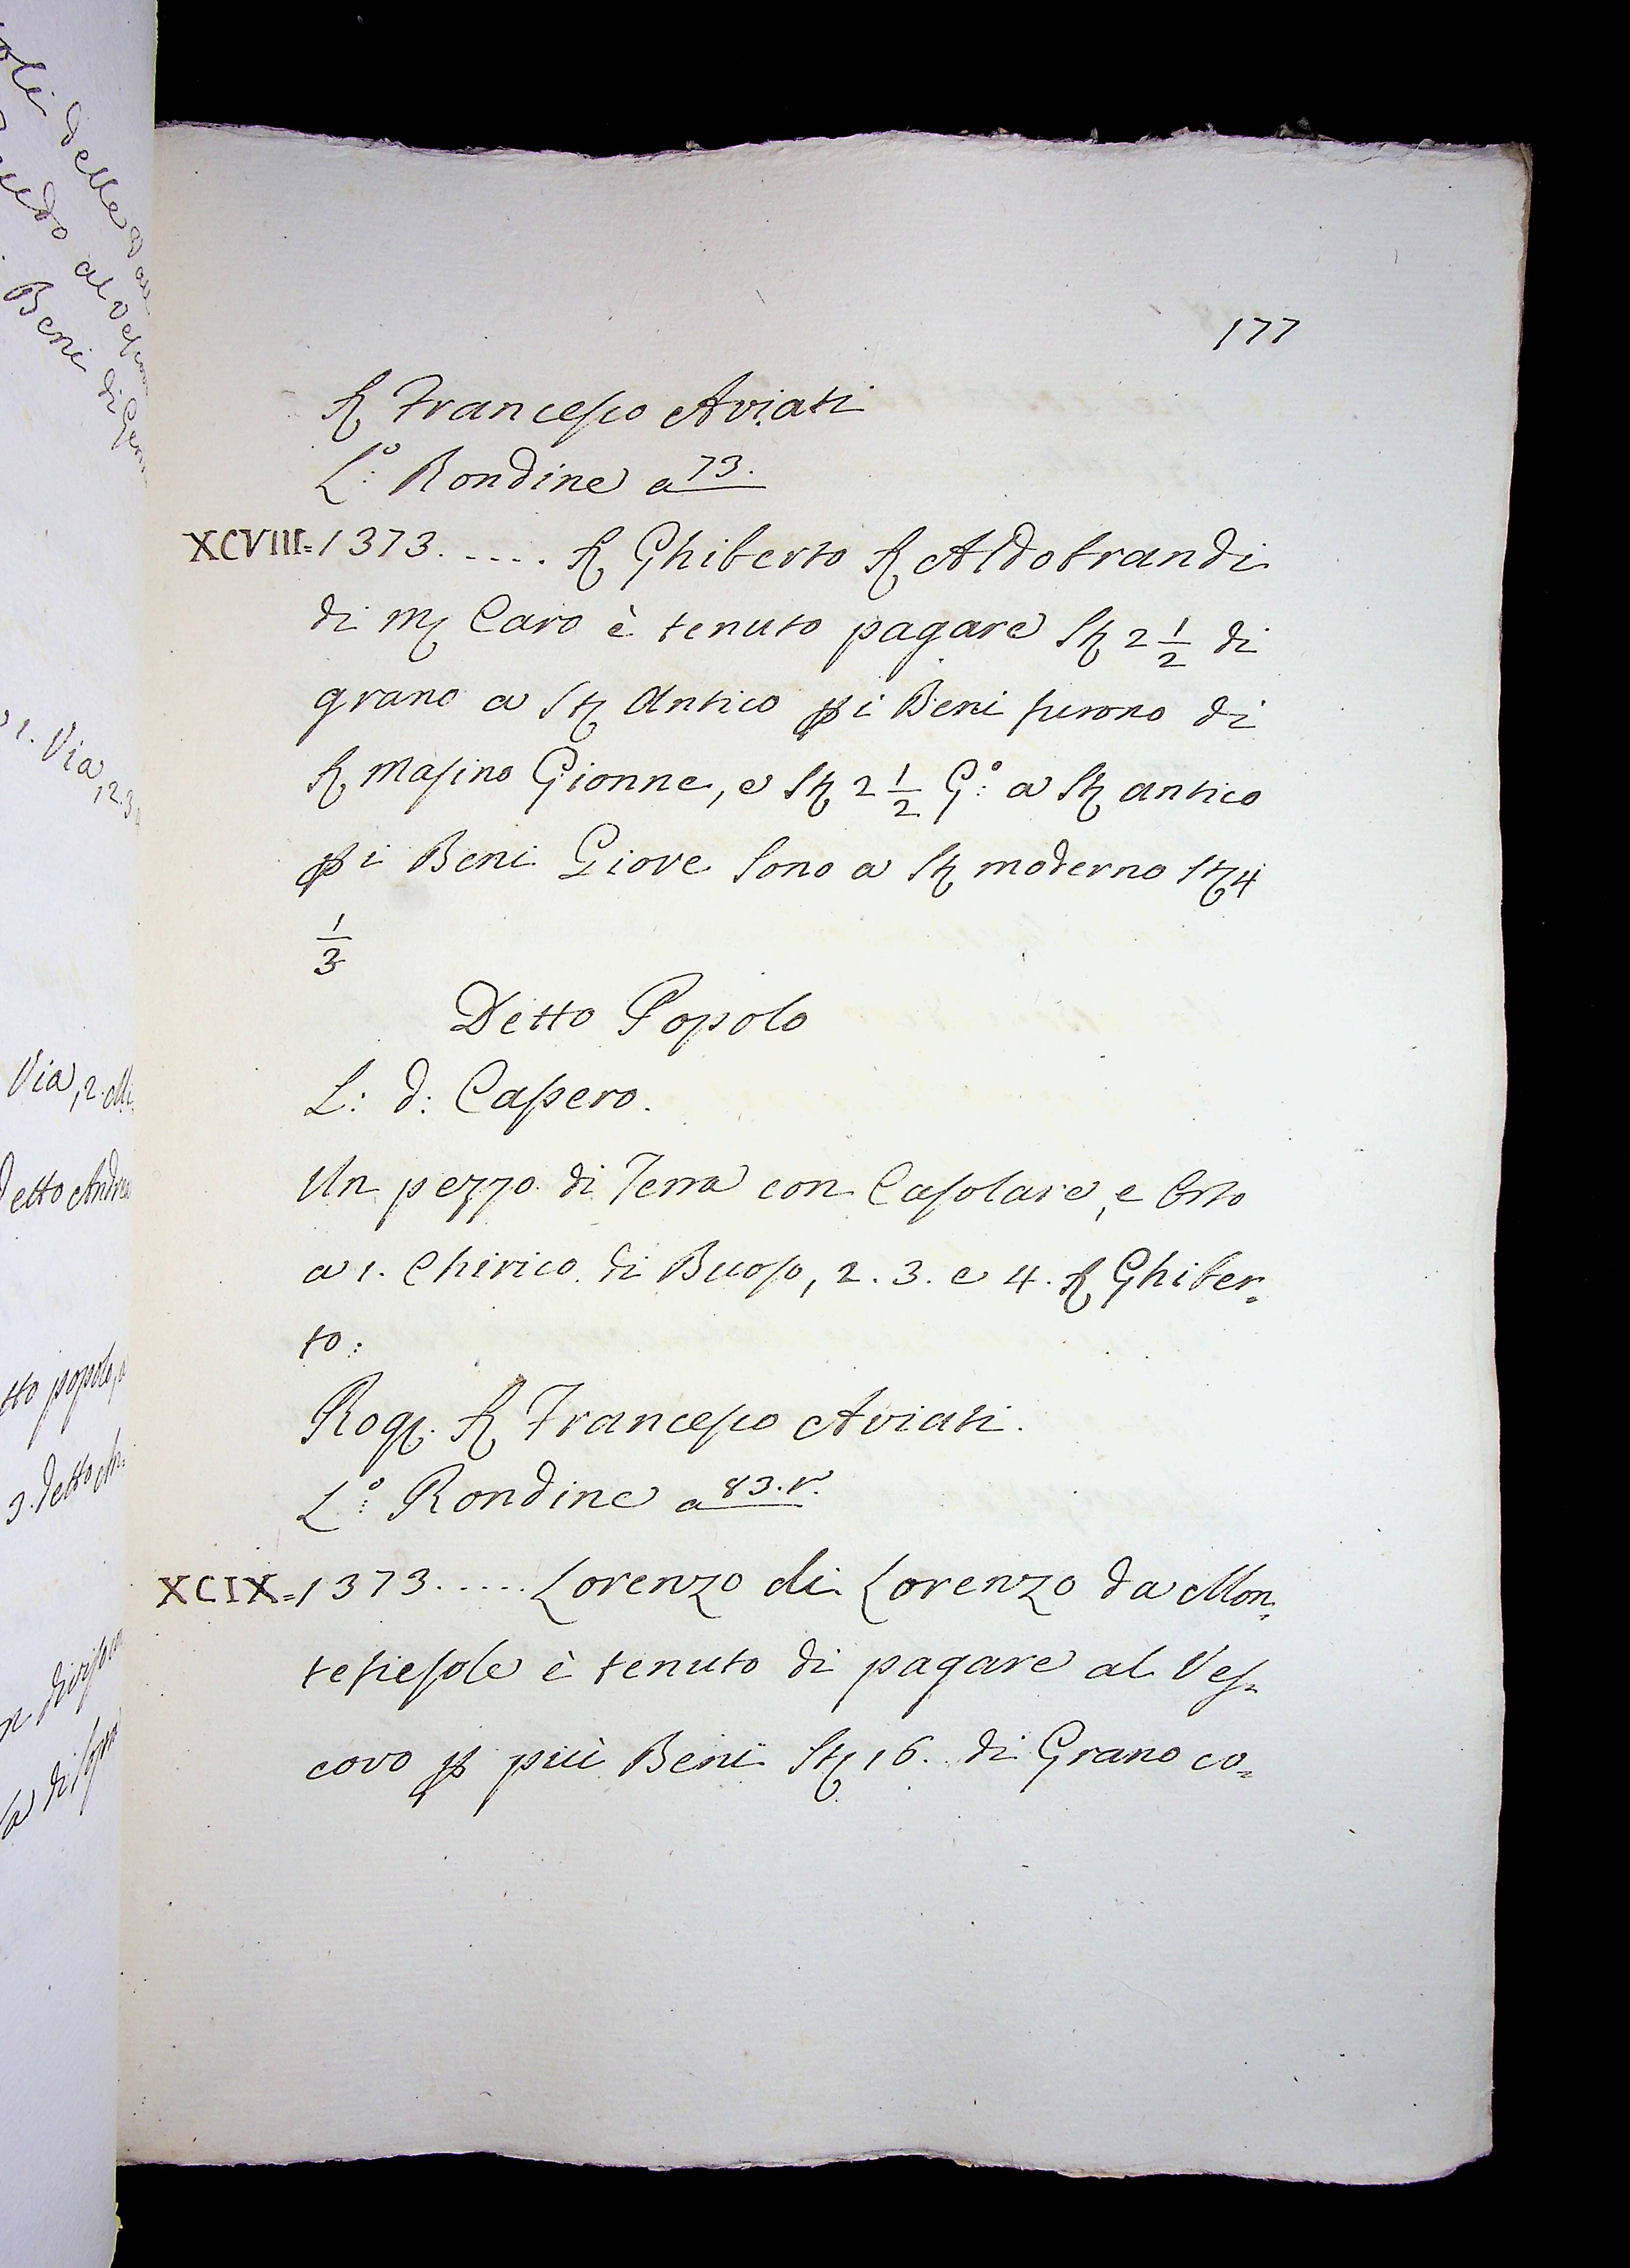 177
S. Francesco Aviati
L.º Rondine a 73.
XCVIII = 1373. .... S. Ghiberto S. Aldobrandi
di M. Caro è tenuto pagare St. 2 1/2 di
grano a St. Antico p i Beni furono di
S. Masino Gionne, e St. 2 1/2 G.º a St. antico
p i Beni Giove sono a St. moderno St. 4
1/3
Detto Popolo
L: d: Cassero.
Un pezzo di Terra con Casolare, e Orto
a 1. Chirico di Buoso, 2. 3. e 4. S. Ghiber-
to:
Rog. S. Francesco Aviati.
L.º Rondine a 83. r.
XCIX = 1373. .... Lorenzo di Lorenzo da Mon-
tefiesole è tenuto di pagare al Ves-
covo p più Beni St. 16. di Grano co-
Beni di
1. Via, 2. 3
Via, 2.
Detto Andrea
popolo, a
3. detto